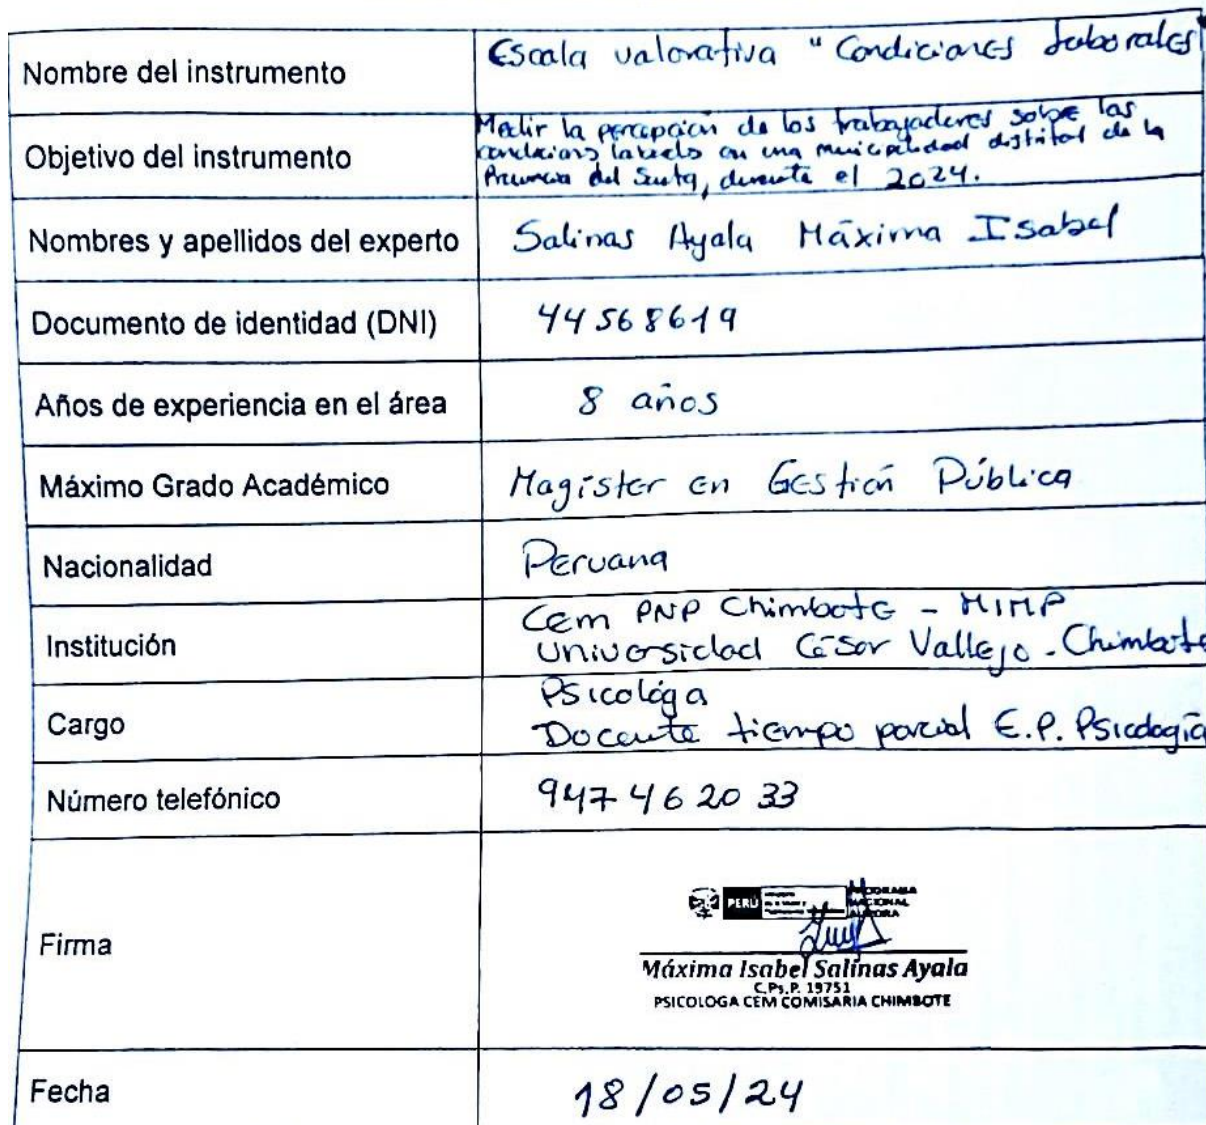 Nombre del instrumento
Escala valorativa "Condiciones Laborales"
Objetivo del instrumento
Medir la percepción de los trabajadores sobre las
condiciones laborales en una municipalidad distrital de la
Provincia del Santa, durante el 2024.
Nombres y apellidos del experto
Salinas Ayala Máxima Isabel
Documento de identidad (DNI)
44568619
Años de experiencia en el área
8 años
Máximo Grado Académico
Magíster en Gestión Pública
Nacionalidad
Peruana
Institución
Cem PNP Chimbote - MIMP
Universidad César Vallejo - Chimbote
Cargo
Psicológa
Docente tiempo parcial E.P. Psicología
Número telefónico
947462033
Firma
PERÚ
PROGRAMA
NACIONAL
AURORA
Máxima Isabel Salinas Ayala
C.Ps.P. 19751
PSICOLOGA CEM COMISARIA CHIMBOTE
Fecha
18/05/24